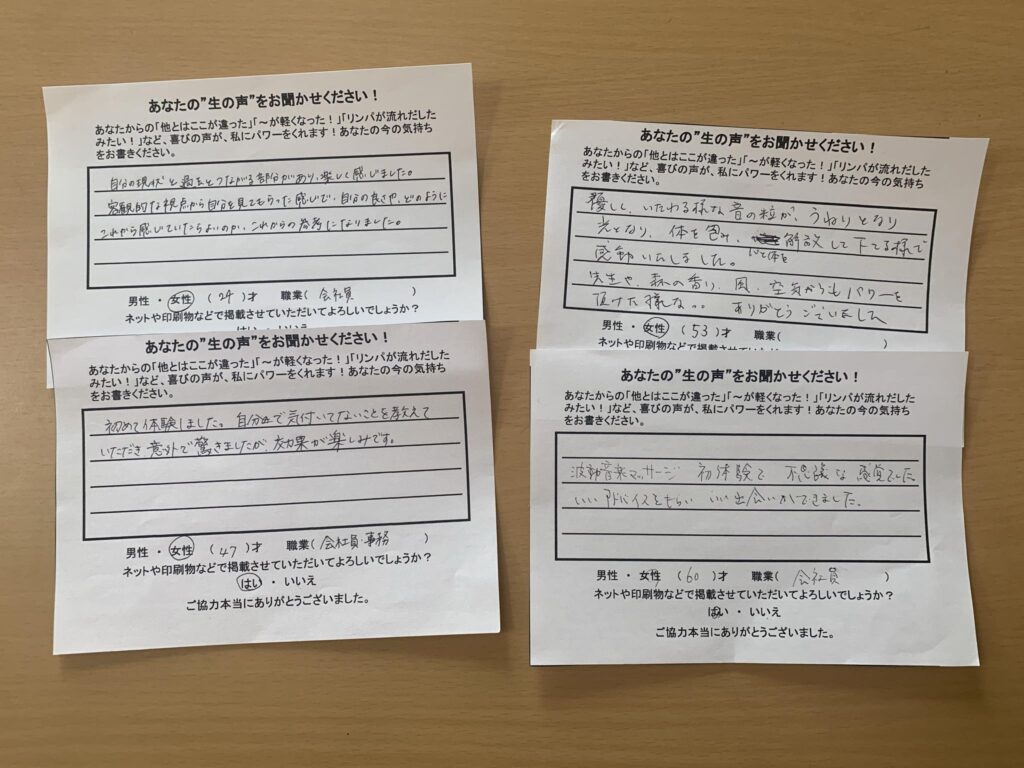 あなたの"生の声"をお聞かせください！
あなたからの「他とはここが違った」「～が軽くなった！」「リンパが流れだした
みたい！」など、喜びの声が、私にパワーをくれます！あなたの今の気持ち
をお書きください。
自分の現状と過去とつながる部分があり、楽しく感じました。
客観的な視点から自分を見てもらった感じで、自分の良さや、どのように
これから感じていたらよいのか、これからの参考になりました。
男性 ・ 女性 （ 24 ）才 職業（ 会社員 ）
ネットや印刷物などで掲載させていただいてよろしいでしょうか？
はい ・ いいえ
あなたの"生の声"をお聞かせください！
あなたからの「他とはここが違った」「～が軽くなった！」「リンパが流れだした
みたい！」など、喜びの声が、私にパワーをくれます！あなたの今の気持ち
をお書きください。
初めて体験しました。自分で気付いてないことを教えて
いただき意外で驚きましたが、効果が楽しみです。
男性 ・ 女性 （ 47 ）才 職業（ 会社員・事務 ）
ネットや印刷物などで掲載させていただいてよろしいでしょうか？
はい ・ いいえ
ご協力本当にありがとうございました。
あなたの"生の声"をお聞かせください！
あなたからの「他とはここが違った」「～が軽くなった！」「リンパが流れだした
みたい！」など、喜びの声が、私にパワーをくれます！あなたの今の気持ち
をお書きください。
優しく、いたわる様な音の粒が、うねりとなり
光となり、体を包み、解放して下さる様で
感動いたしました。
先生や、森の香り、風、空気からもパワーを
頂けた様な。。ありがとうございました
男性 ・ 女性 （ 53 ）才 職業（ ）
ネットや印刷物などで掲載させていただ
あなたの"生の声"をお聞かせください！
あなたからの「他とはここが違った」「～が軽くなった！」「リンパが流れだした
みたい！」など、喜びの声が、私にパワーをくれます！あなたの今の気持ち
をお書きください。
波動音楽マッサージ 初体験で 不思議な感覚でした
いいアドバイスをもらい いい出会いができました。
男性 ・ 女性 （ 60 ）才 職業（ 会社員 ）
ネットや印刷物などで掲載させていただいてよろしいでしょうか？
はい ・ いいえ
ご協力本当にありがとうございました。